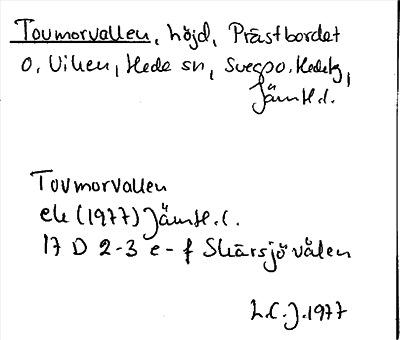 Toumorvallen, höjd, Prästbordet
o, Viken, Hede sn, Svegpo, Hedetg,
Jämtl.l.
Tovmorvallen
ek (1977) Jämtl.l.
17 D 2-3 e-f Skärsjövålen
L.C.J. 1977